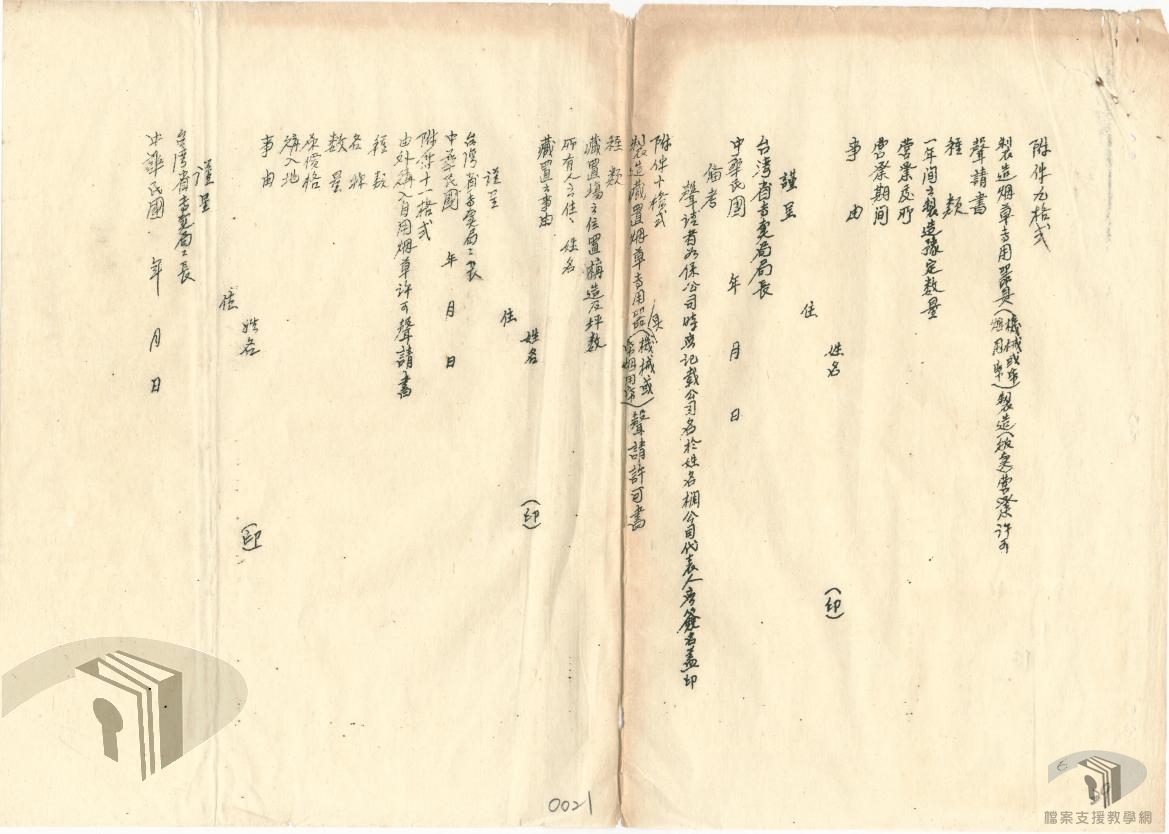 附件九格式
製造烟草專用器具(機械或卷烟用紙)製造(販賣)營業許可
聲請書
種類
一年間之製造豫定數量
營業處所
營業期間
事由
住
姓名 (印)
謹呈
台灣省專賣局局長
中華民國 年 月 日
備考
聲請者如係公司時要記載公司名於姓名欄公司代表人應簽名蓋印
附件十格式
製造藏置烟草專用器具(機械或卷烟用紙)聲請許可書
種類
藏置場之位置構造及坪數
所有人之住、姓名
藏置之事由
姓名 (印)
住
謹呈
台灣省專賣局局長
中華民國 年 月 日
附件十一格式
由外購入自用烟草許可聲請書
種類
名稱
數量
原價格
購入地
事由
姓名 (印)
住
謹呈
台灣省專賣局局長
中華民國 年 月 日
0021
檔案支援教學網